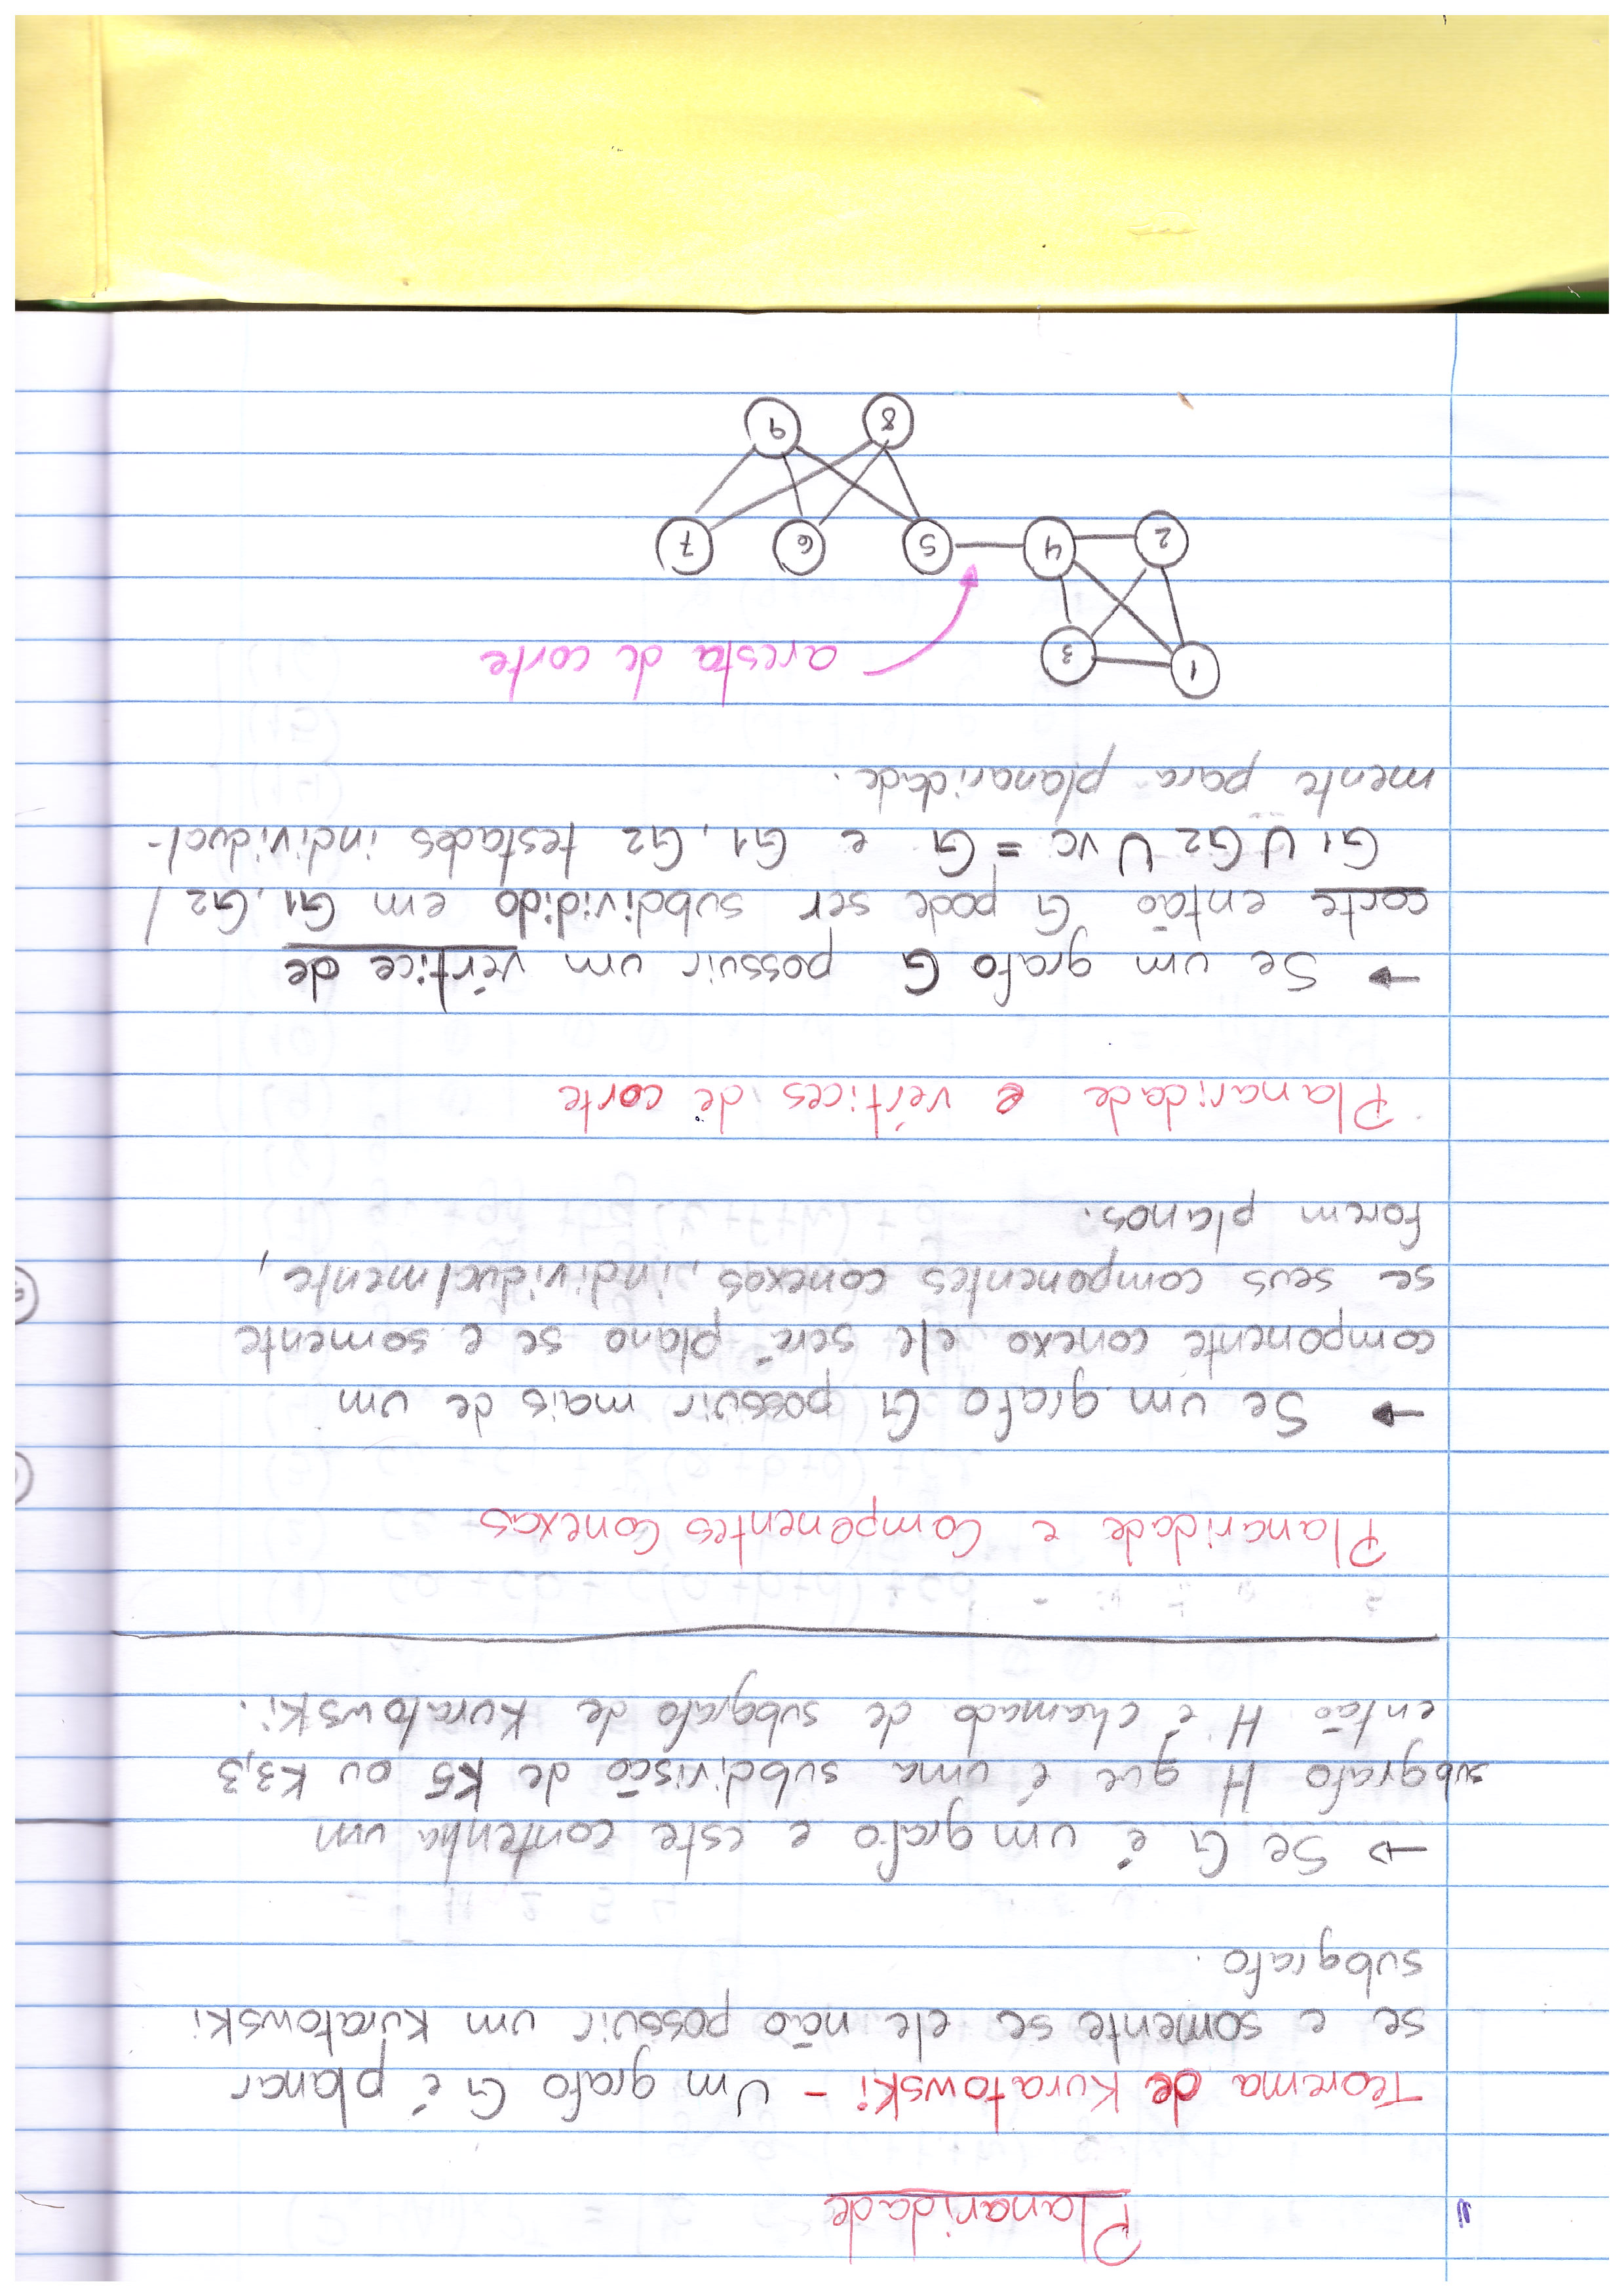 Planaridade
Teorema de Kuratowski - Um grafo G é planar
se e somente se ele não possuir um Kuratowski
subgrafo.
→ Se G é um grafo e este contenha um
subgrafo H que é uma subdivisão de K5 ou K3,3
então H é chamado de subgrafo de Kuratowski.
Planaridade e Componentes Conexas
→ Se um grafo G possuir mais de um
componente conexo ele será plano se e somente
se seus componentes conexos, individualmente,
forem planos.
Planaridade e vértices de corte
→ Se um grafo G possuir um vértice de
corte então G pode ser subdividido em G1, G2 /
G1 U G2 U vc = G e G1, G2 testados individual-
mente para planaridade.
1 3 aresta de corte
2 4 5 6 7
8 9